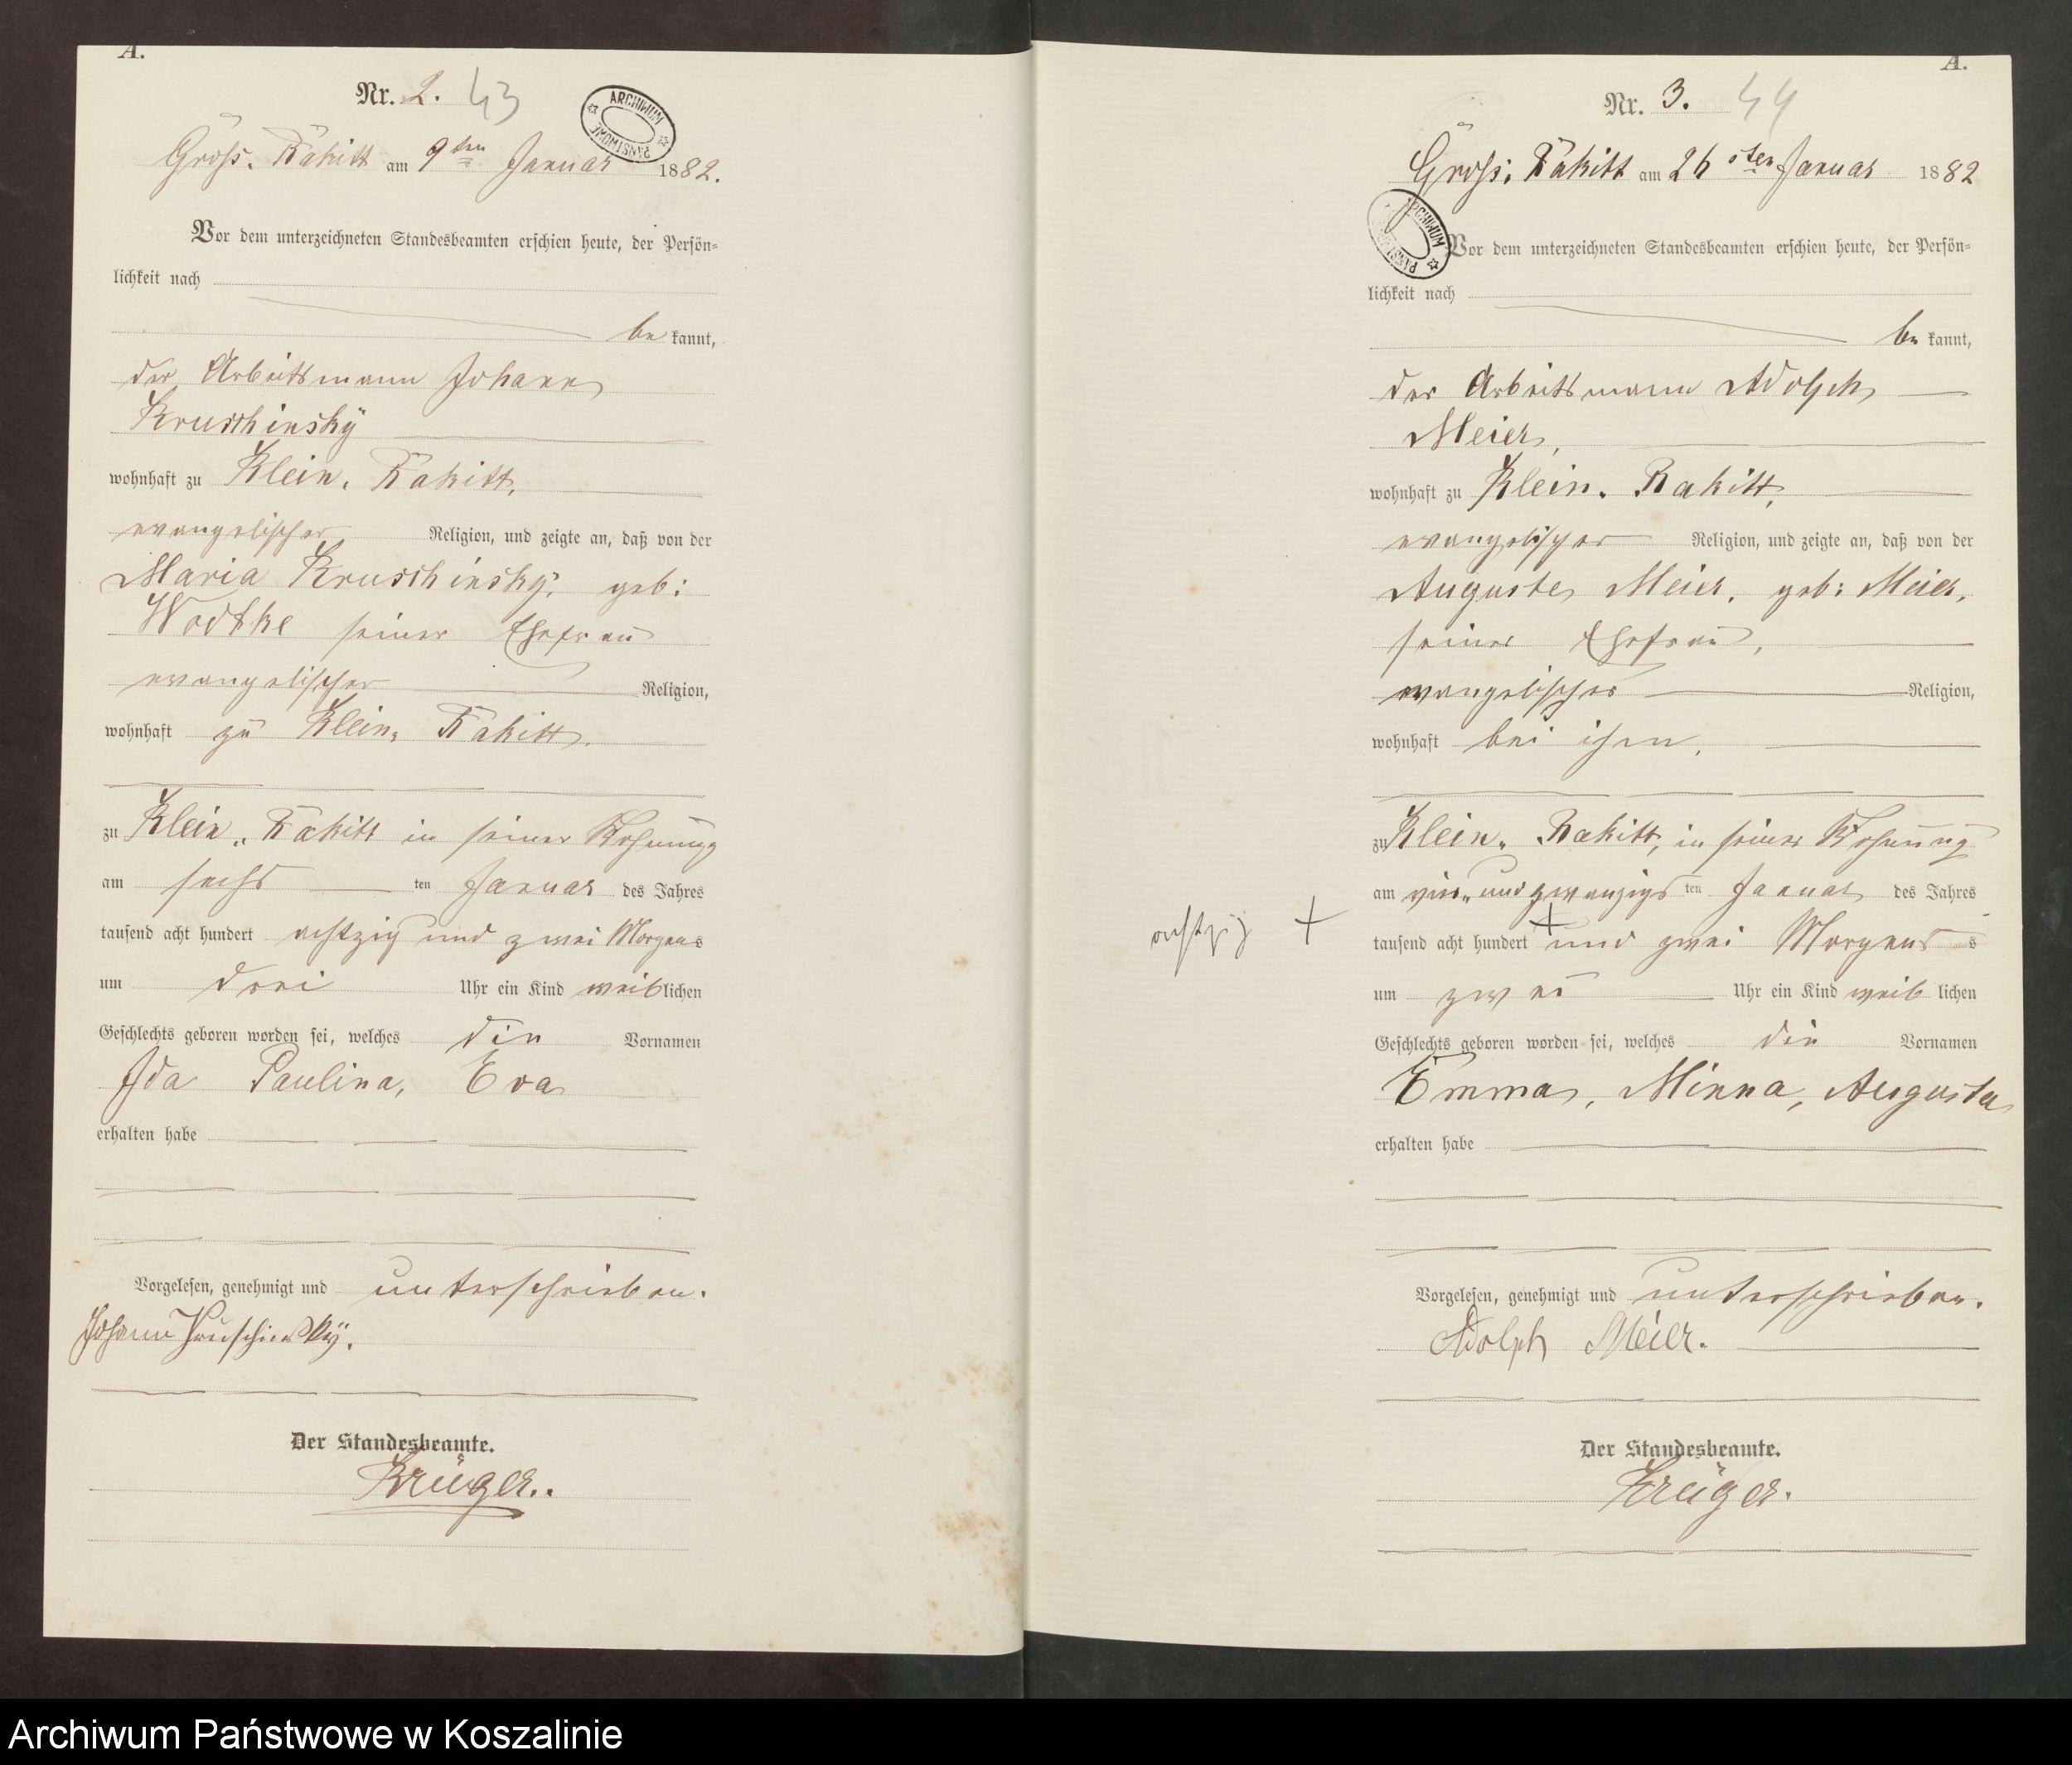 A.
Nr. 2. 43
ARCHIWUM PAŃSTWOWE
Gross. Rakitt am 9ten Januar 1882.
Vor dem unterzeichneten Standesbeamten erschien heute, der Persön=
lichkeit nach
be kannt,
der Arbeitsmann Johann
Kruschinsky
wohnhaft zu Klein. Rakitt,
evangelischer Religion, und zeigte an, daß von der
Maria Kruschinsky, geb:
Wodtke seiner Ehefrau
evangelischer Religion,
wohnhaft zu Klein. Rakitt.
zu Klein. Rakitt in seiner Wohnung
am sechs ten Januar des Jahres
tausend acht hundert achtzig und zwei Morgens
um drei Uhr ein Kind weiblichen
Geschlechts geboren worden sei, welches die Vornamen
Ida Paulina, Eva
erhalten habe
Vorgelesen, genehmigt und unterschrieben.
Johann Kruschinsky.
Der Standesbeamte.
Krüger.
A.
Nr. 3. 44
Gross. Rakitt am 26sten Januar 1882
ARCHIWUM
Vor dem unterzeichneten Standesbeamten erschien heute, der Persön=
lichkeit nach
be kannt,
der Arbeitsmann Adolph
Meier,
wohnhaft zu Klein. Rakitt,
evangelischer Religion, und zeigte an, daß von der
Auguste Meier, geb: Meier,
seiner Ehefrau,
evangelischer Religion,
wohnhaft bei ihm,
zu Klein. Rakitt, in seiner Wohnung
am vier und zwanzigs ten Januar des Jahres
achtzig + tausend acht hundert + und zwei Morgens s
um zwei Uhr ein Kind weib lichen
Geschlechts geboren worden sei, welches die Vornamen
Emma, Minna, Augusta
erhalten habe
Vorgelesen, genehmigt und unterschrieben.
Adolph Meier.
Der Standesbeamte.
Krüger.
Archiwum Państwowe w Koszalinie